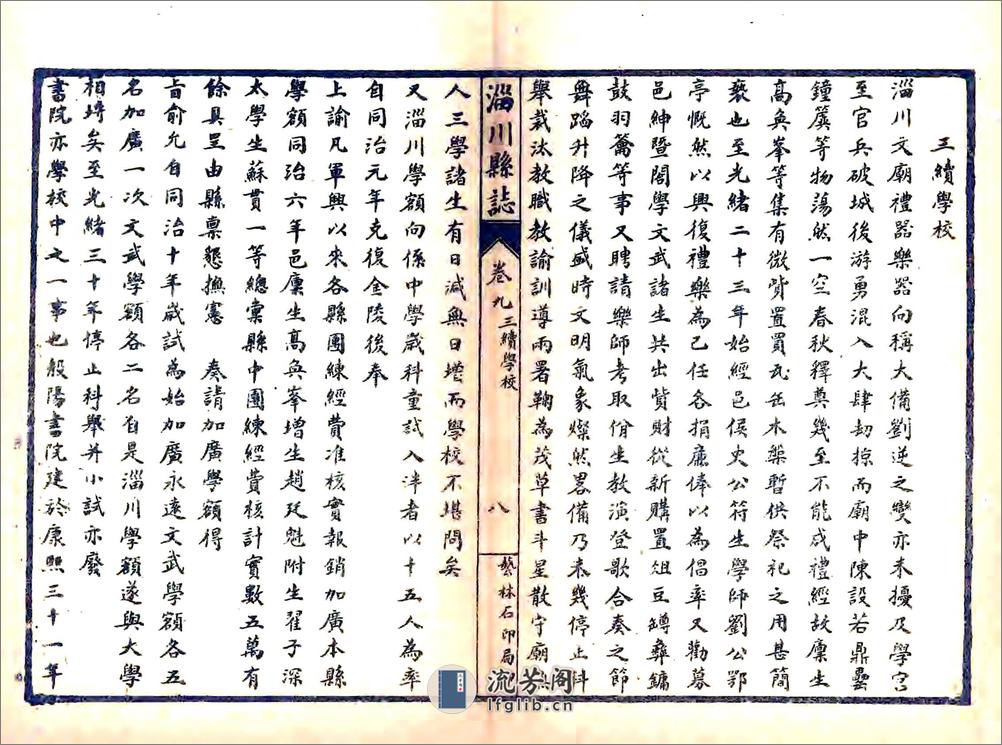 三續學校
淄川文廟禮器樂器向稱大備劉逆之變亦未擾及學宫
至官兵破城後游勇混入大肆劫掠而廟中陳設若鼎罍
鐘簴等物蕩然一空春秋釋奠幾至不能成禮經故廩生
高奐峯等集有微貲置買瓦缶木槃暫供祭祀之用甚簡
褻也至光緒二十三年始經邑侯史公符生學師劉公鄂
亭慨然以興復禮樂為己任各捐廉俸以為倡率又勸募
邑紳暨閤學文武諸生共出貲財從新購置俎豆罇彝鏞
鼓羽籥等事又聘請樂師考取佾生教演登歌合奏之節
舞蹈升降之儀盛時文明氣象燦然畧備乃未幾停止科
舉裁汰教職教諭訓導兩署鞠為茂草書斗星散守廟
淄川縣誌
卷九 三續學校
八
藝林石印局
人三學諸生有日減無日增而學校不堪問矣
又淄川學額向係中學歲科童試入泮者以十五人為率
自同治元年克復金陵後奉
上諭凡軍興以來各縣團練經費准核實報銷加廣本縣
學額同治六年邑廩生高奐峯增生趙廷魁附生翟子深
太學生蘇貫一等總彙縣中團練經費核計實數五萬有
餘具呈由縣稟懇撫憲 奏請加廣學額得
旨俞允自同治十年歲試為始加廣永遠文武學額各五
名加廣一次文武學額各二名自是淄川學額遂與大學
相埒矣至光緒三十年停止科舉并小試亦廢
書院亦學校中之一事也般陽書院建於康熙三十一年
流芳阁
lfglib.cn